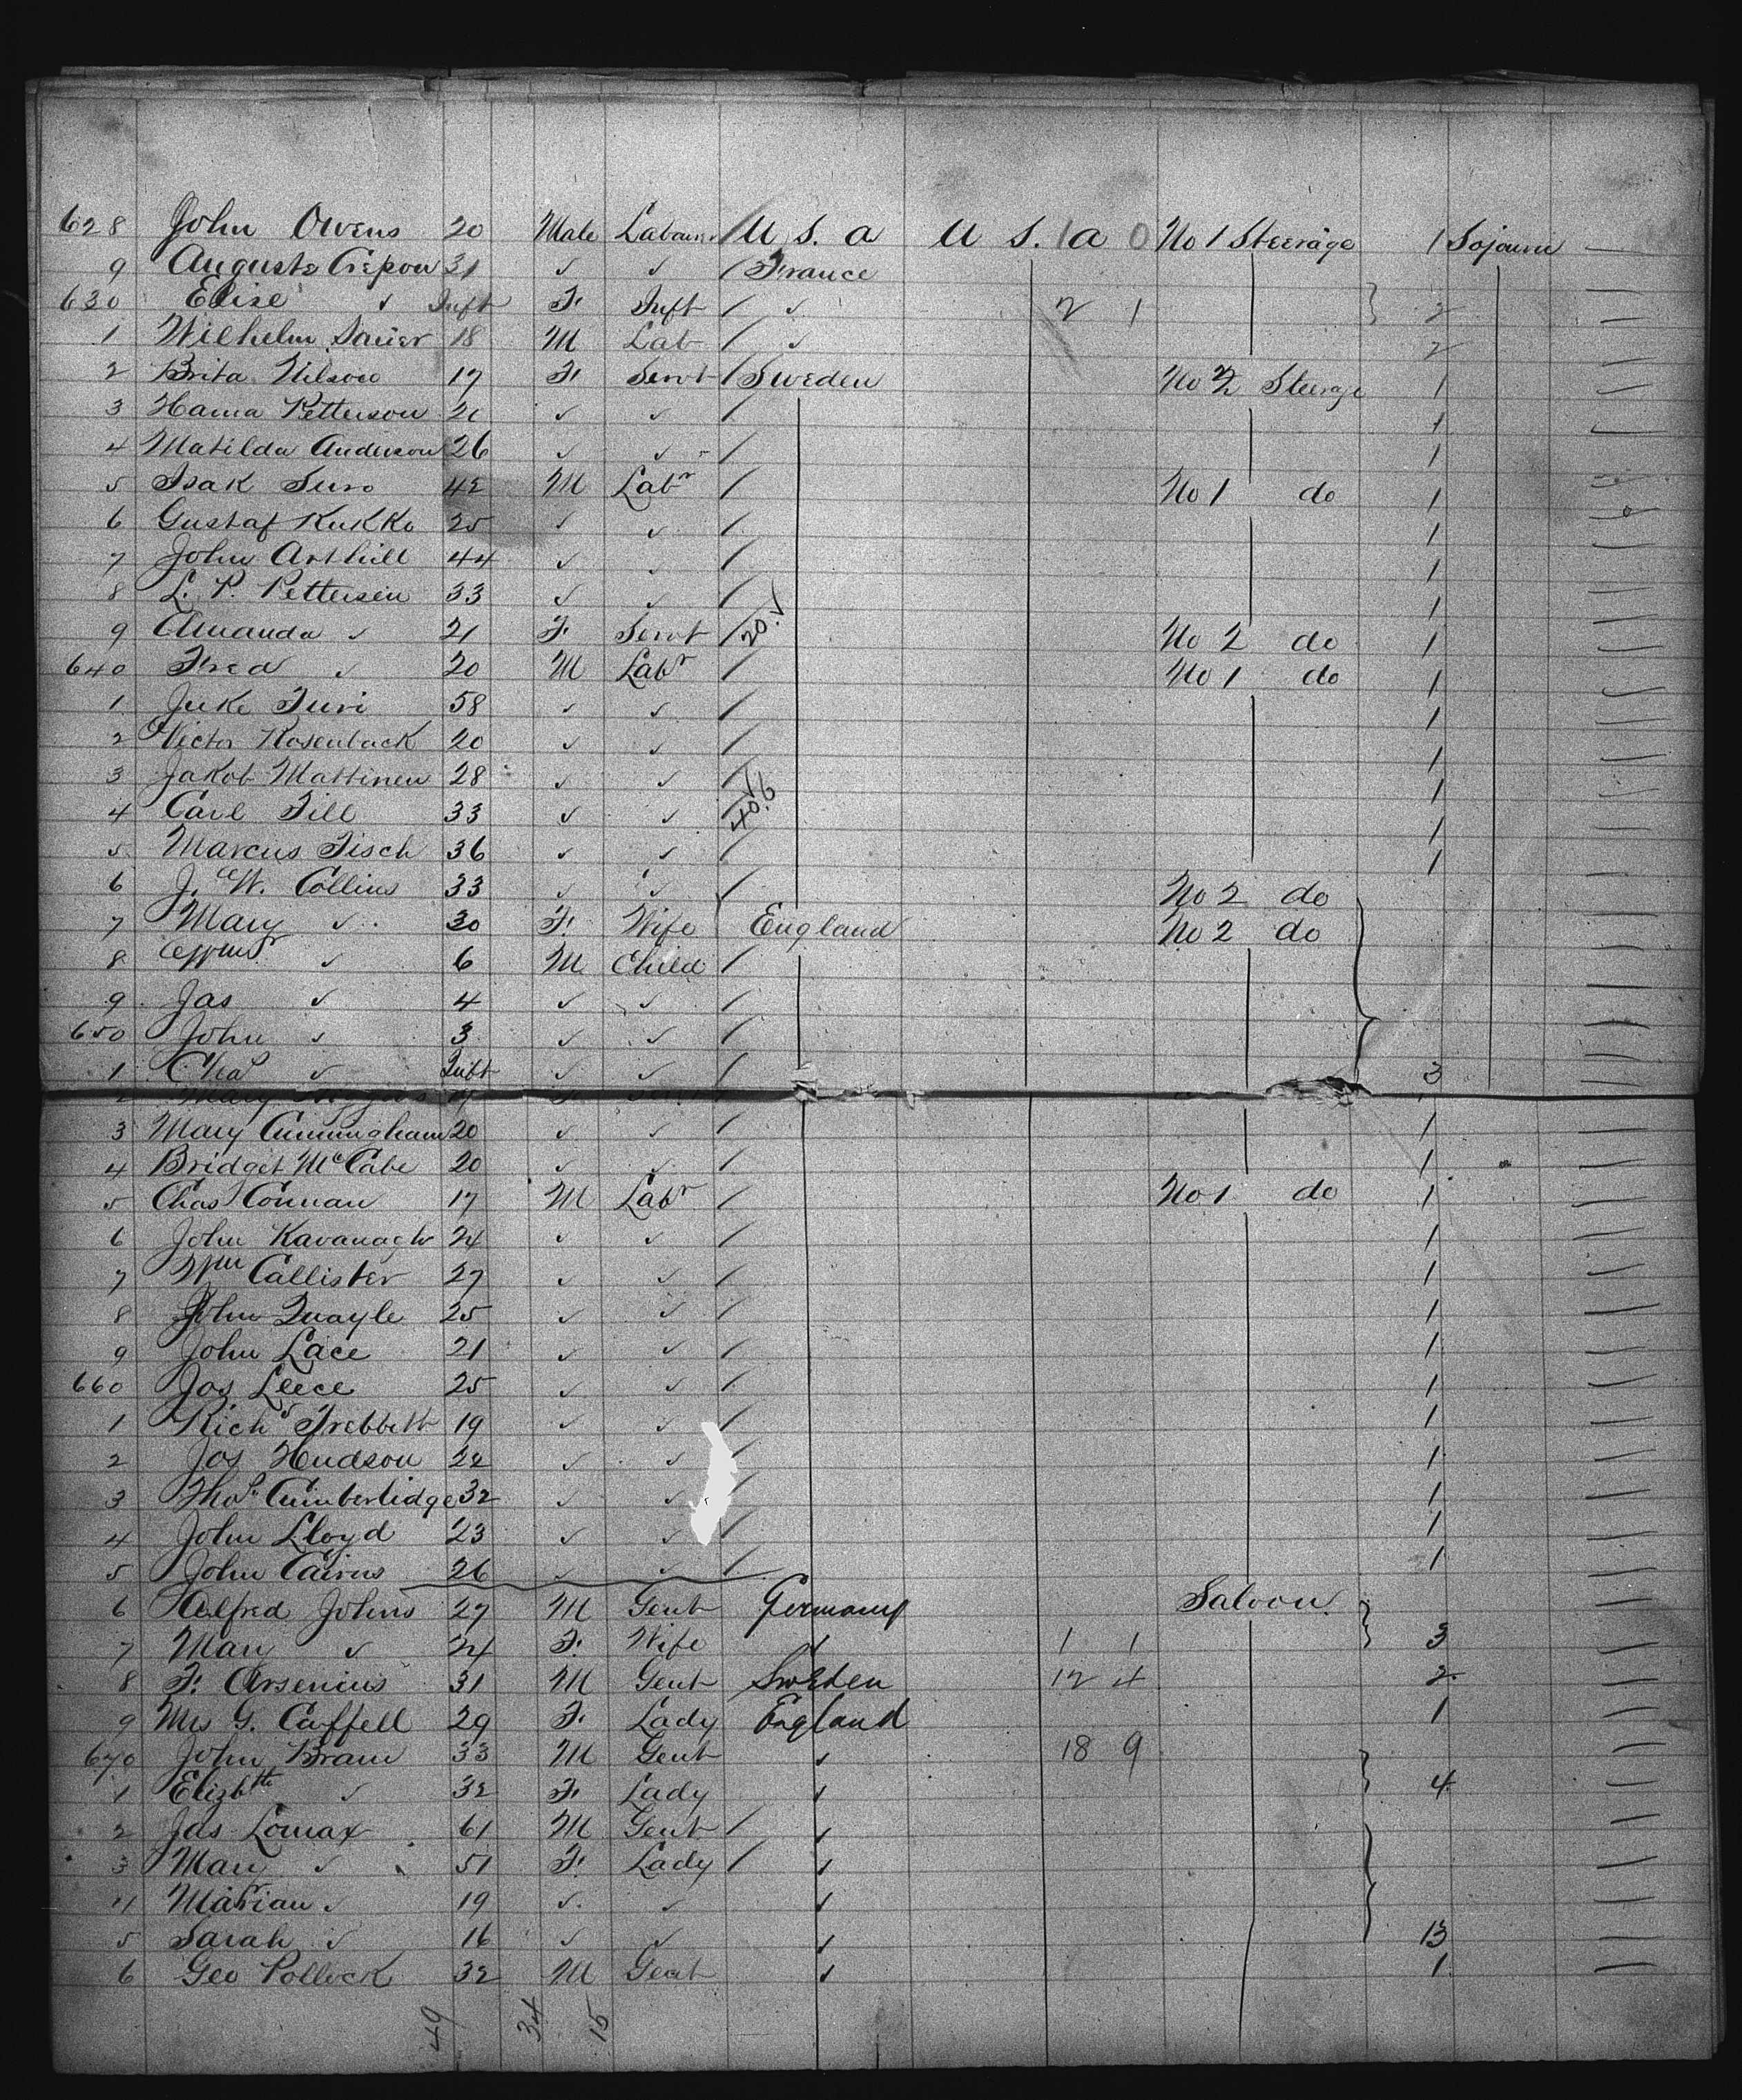 628 John Owens 20 Male Labourer / U S. a U S. 1 a 0 No 1 Steerage 1 Sojourn —
9 Auguste Crepon 31 ✓ ✓ / France —
630 Elise ✓ Inft F. Inft / ✓ 2 1 2 —
1 Wilhelm Sauer 18 M Lab / ✓ 2 —
2 Brita Nilson 17 F. Servt / Sweden No 2 Steerage 1 —
3 Petterson 21 ✓ ✓ / 1 —
4 Matilda Anderson 26 ✓ ✓ / 1 —
5 Isak 42 M Labr / No 1 do 1 —
6 Gustaf Kukko 25 ✓ ✓ / 1 —
7 John 44 ✓ ✓ / 1 —
8 L. P. Pettersen 33 ✓ ✓ / 1 —
9 Amanda ✓ 21 F. Servt / 20. ✓ No 2 do 1 —
640 Fred ✓ 20 M Labr / No 1 do 1 —
1 58 ✓ ✓ / 1 —
2 Victor Rosenback 20 ✓ ✓ / 1 —
3 Jakob Mattinen 28 ✓ ✓ / 1 —
4 Carl 33 ✓ ✓ / 1 —
5 Marcus 36 ✓ ✓ / 1 —
6 J. W. Collins 33 ✓ ✓ / No 2 do —
7 Mary ✓ 30 F. Wife England No 2 do —
8 Wm ✓ 6 M Child / —
9 Jas ✓ 4 ✓ ✓ / —
650 John ✓ 3 ✓ ✓ / —
1 Chas ✓ Inft ✓ ✓ / 3 —
2 Mary
3 Mary Cunningham 20 ✓ ✓ / 1 —
4 Bridget McCabe 20 ✓ ✓ / 1 —
5 Chas Connan 17 M Labr / No 1 do 1 —
6 John Kavanagh 24 ✓ ✓ / 1 —
7 Wm Callister 27 ✓ ✓ / 1 —
8 John Quayle 25 ✓ ✓ / 1 —
9 John Lace 21 ✓ ✓ / 1 —
660 Jos Leece 25 ✓ ✓ / 1 —
1 Richd 19 ✓ ✓ / 1 —
2 Jos Hudson 22 ✓ ✓ / 1 —
3 Thos. Cumberlidge 32 ✓ ✓ / 1 —
4 John Lloyd 23 ✓ ✓ / 1 —
5 John Cairns 26 ✓ ✓ / 1 —
6 Alfred Johns 27 M Gent Germany Saloon —
7 Mary ✓ 24 F. Wife ✓ 1 1 3 —
8 F. Arsenius 31 M Gent Sweden 12 4 2 —
9 Mrs G. Caffell 29 F. Lady England 1 —
670 John Bram 33 M Gent ✓ 18 9 —
1 Elizbth ✓ 32 F. Lady ✓ 4 —
2 Jas Lomax 61 M Gent / ✓ —
3 Mary ✓ 51 F. Lady / ✓ —
4 Marian ✓ 19 ✓ ✓ ✓ —
5 Sarah ✓ 16 ✓ ✓ ✓ 13 —
6 Geo Pollock 32 M Gent ✓ 1 —
49 34 15